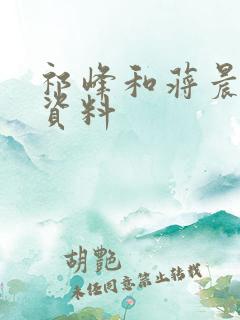 祁峰和蔣晨
資料
胡艷
未经同意禁止转载